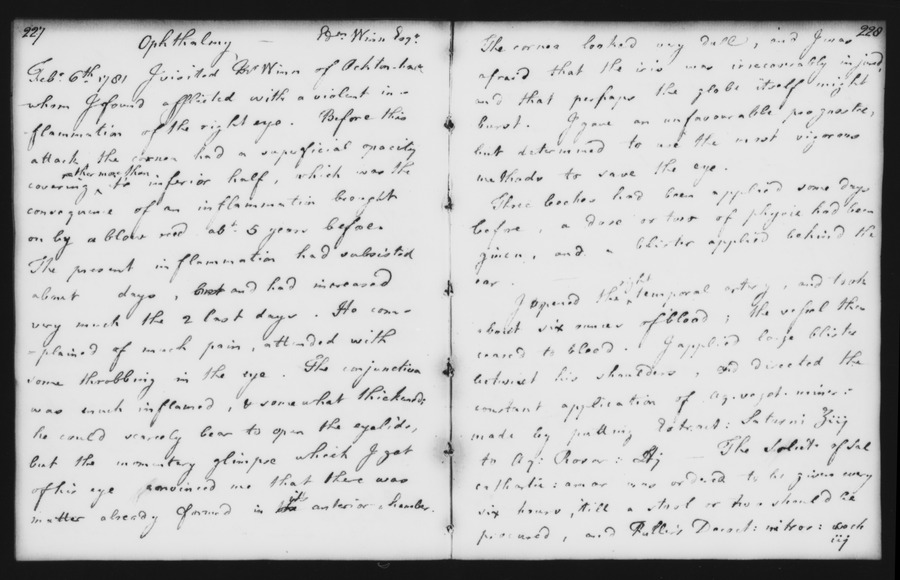 227
Ophthalmy — Edm Winn Esqr.
Feb: 6th 1781 I visited Mr Winn of Ackton-
whom I found afflicted with a violent in-
-flammation of the right eye. Before this
attack, the cornea had a superficial opacity
rather more than
covering its inferior half, which was the
consequence of an inflammation brought
on by a blow recd abt. 5 years before
The present inflammation had subsisted
about days, and had increased
very much the 2 last days. He com-
-plained of much pain, attended with
some throbbing in the eye. The conjunctiva
was much inflamed, & somewhat thickened:
he could scarcely bear to open the eyelids,
but the momentary glimpse which I got
of his eye convinced me that there was
matter already formed in its anterior chamber.
228
The cornea looked very dull, and I was
afraid that the iris was irrecoverably injured,
and that perhaps the globe itself might
burst. I gave an unfavourable prognostic,
but determined to use the most vigorous
methods to save the eye.
Three leeches had been applied some days
before, a dose or two of physic had been
given, and a blister applied behind the
ear.
right
I opened the temporal artery, and took
about six ounces of blood; the vessel then
ceased to bleed. I applied a large blister
betwixt his shoulders, and directed the
constant application of aq. veget. miner:
made by putting Extract: Saturni ʒiij
to Aq: Rosar: ℔j — The Solut: of Sal
cathartic: amar was ordered to be given every
six hours, till a stool or two should be
procured, and Pulv: Decoct: nitros: each
iij